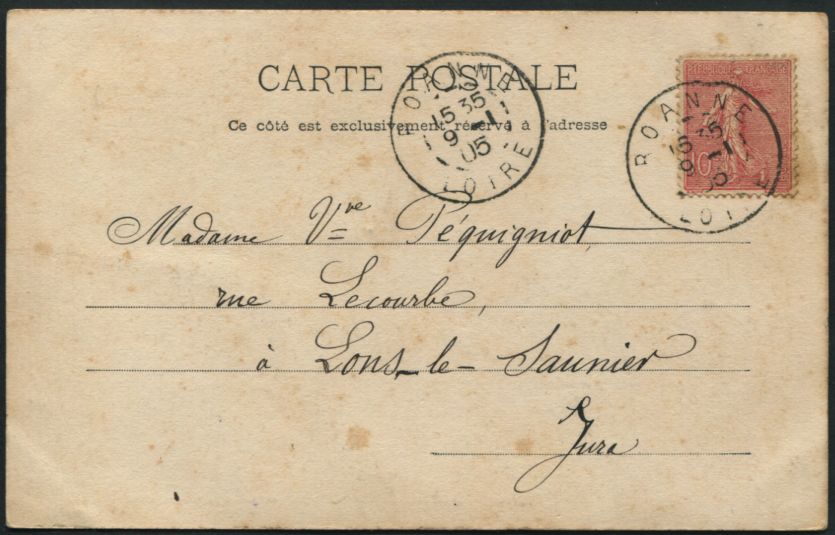 CARTE POSTALE
Ce côté est exclusivement réservé à l'adresse
ROANNE
15 35
9 -1
05
LOIRE
RÉPUBLIQUE FRANÇAISE
10
ROANNE
15 35
9 -1
05
LOIRE
Madame Vve Péquigniot,
rue Lecourbe,
à Lons-le-Saunier
Jura